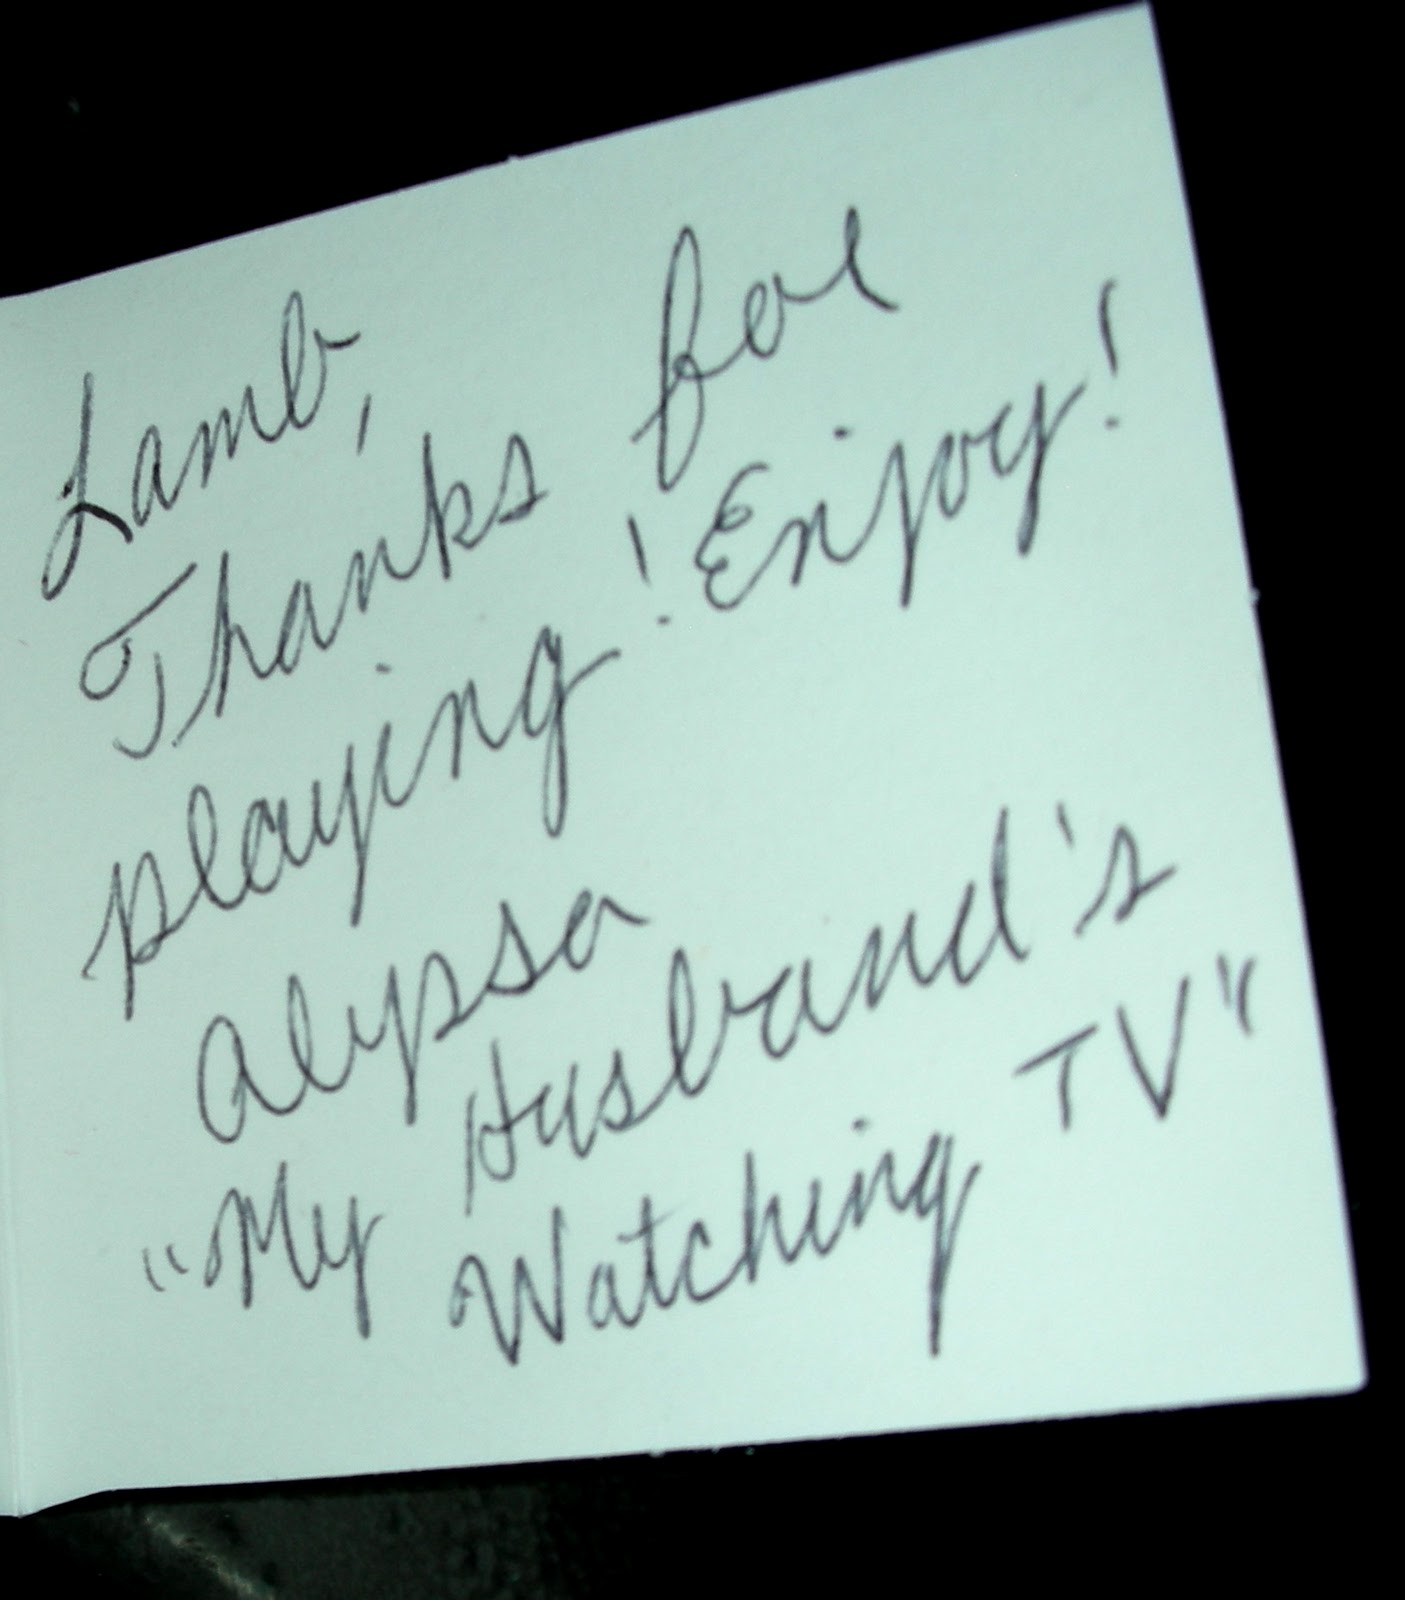 Lamb,
Thanks for
playing! Enjoy!
Alypsa
"My Husband's
Watching TV"